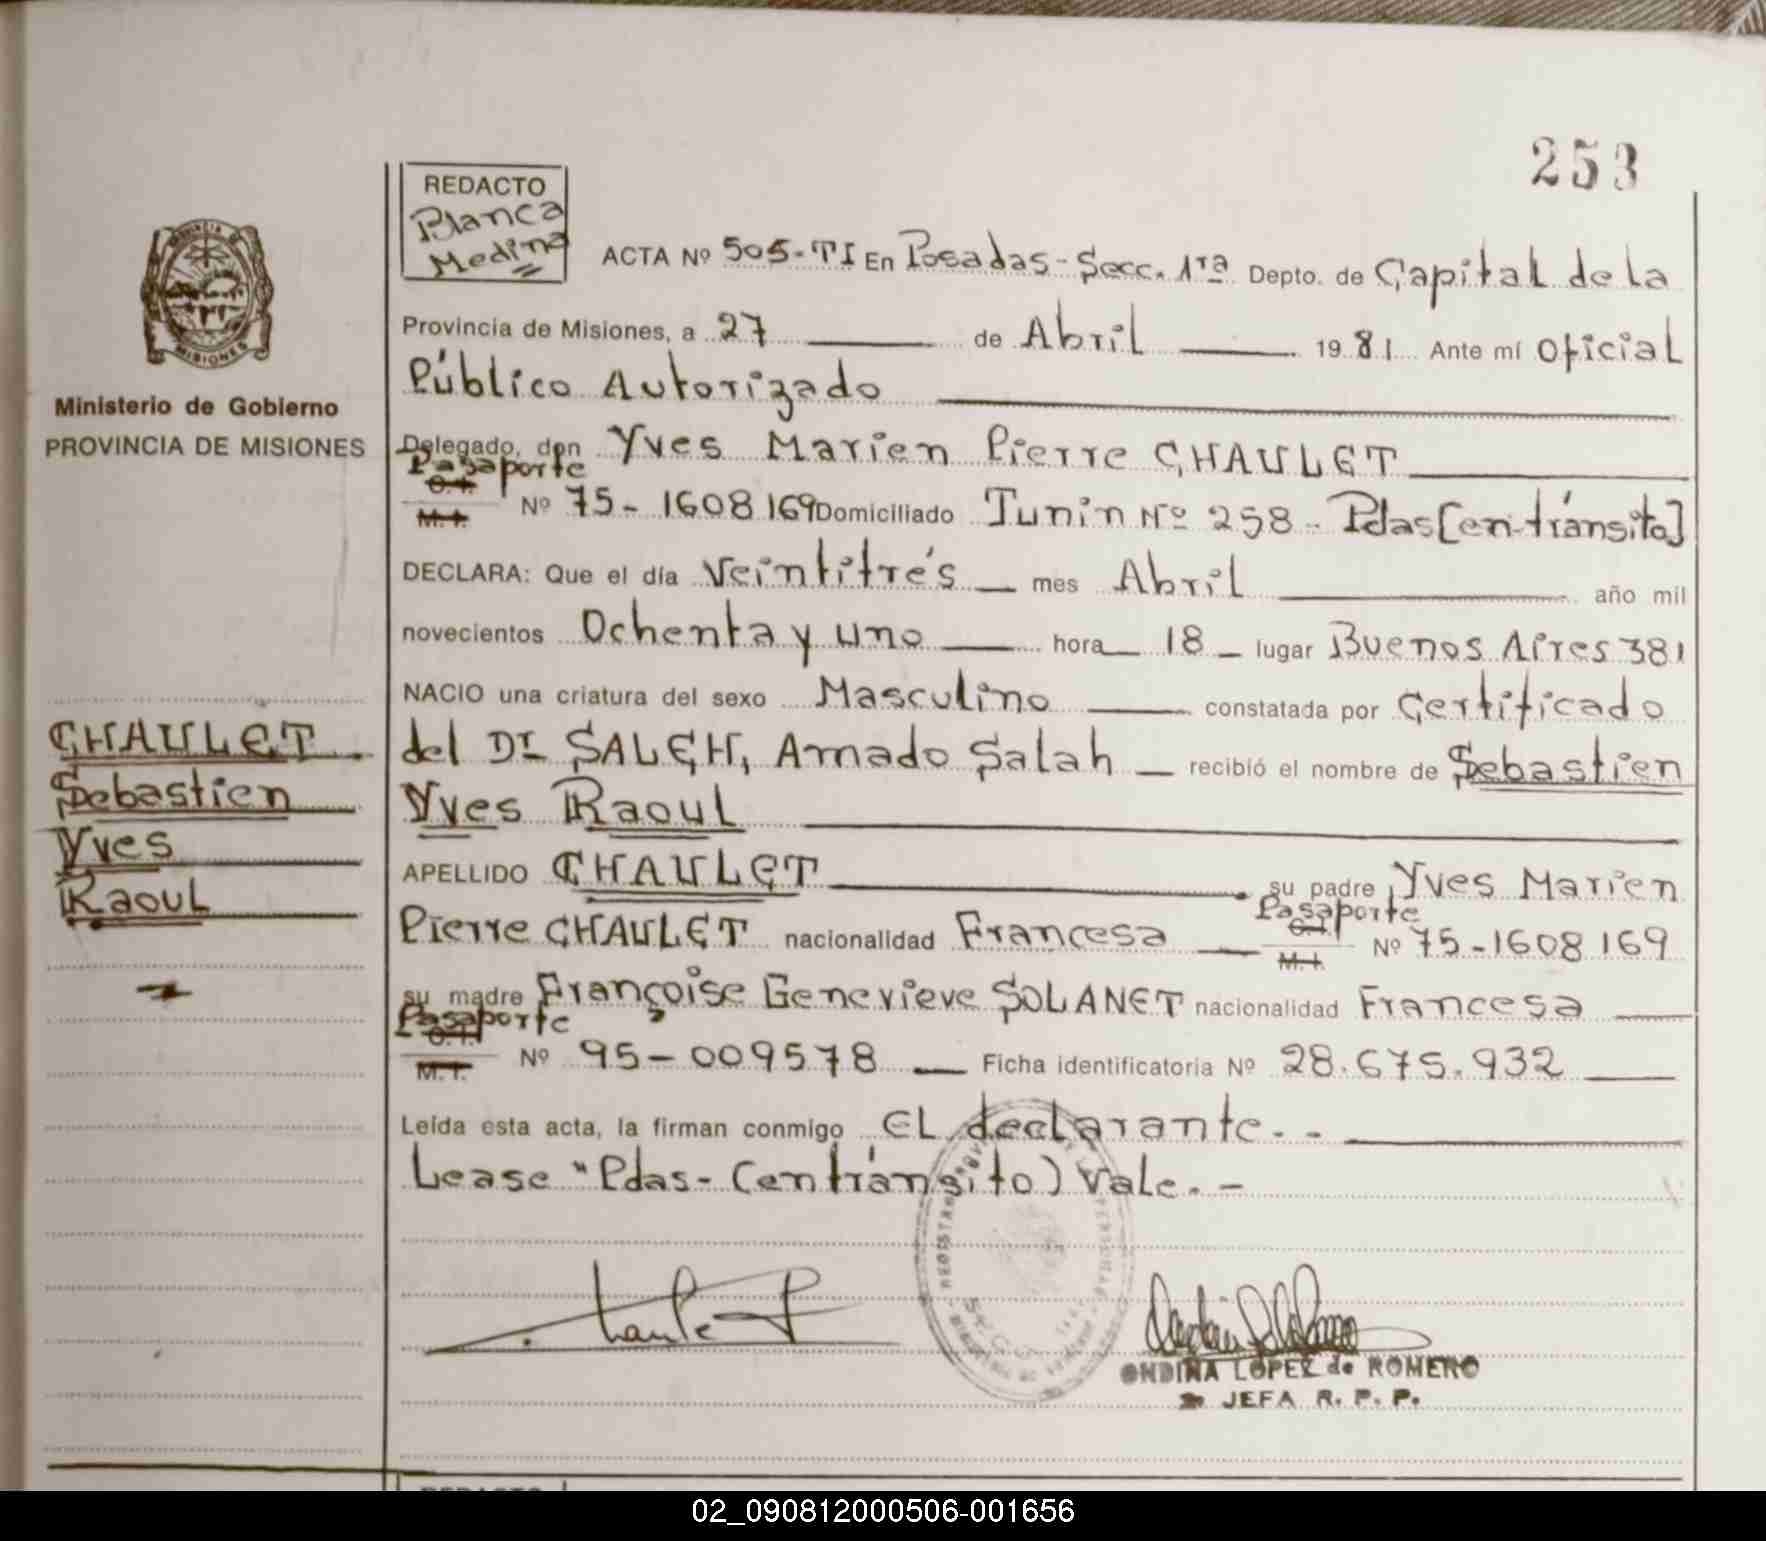 253
REDACTO
Blanca
Medina
ACTA Nº 505-TI En Posadas-Secc. 1ra Depto. de Capital de la
Provincia de Misiones, a 27 de Abril 1981 Ante mí Oficial
Público Autorizado
Delegado, don Yves Marien Pierre CHAULET
Pasaporte
C. I.
M. I. Nº 75-1608169 Domiciliado Junin Nº 258- Pdas [en tránsito]
DECLARA: Que el día Veintitrés mes Abril año mil
novecientos Ochenta y uno hora 18 lugar Buenos Aires 381
NACIO una criatura del sexo Masculino constatada por Certificado
del Dr SALEH, Amado Salah recibió el nombre de Sebastien
Yves Raoul
APELLIDO CHAULET su padre Yves Marien
Pasaporte
C. I.
Pierre CHAULET nacionalidad Francesa M. I. Nº 75-1608169
su madre Françoise Genevieve SOLANET nacionalidad Francesa
Pasaporte
C. I.
M. I. Nº 95-009578 Ficha identificatoria Nº 28.675.932
Leída esta acta, la firman conmigo EL declarante.-
Lease "Pdas- (en tránsito) Vale.-
ONDINA LOPEZ de ROMERO
JEFA R. P. P.
PROVINCIA DE
MISIONES
Ministerio de Gobierno
PROVINCIA DE MISIONES
CHAULET
Sebastien
Yves
Raoul
02_090812000506-001656